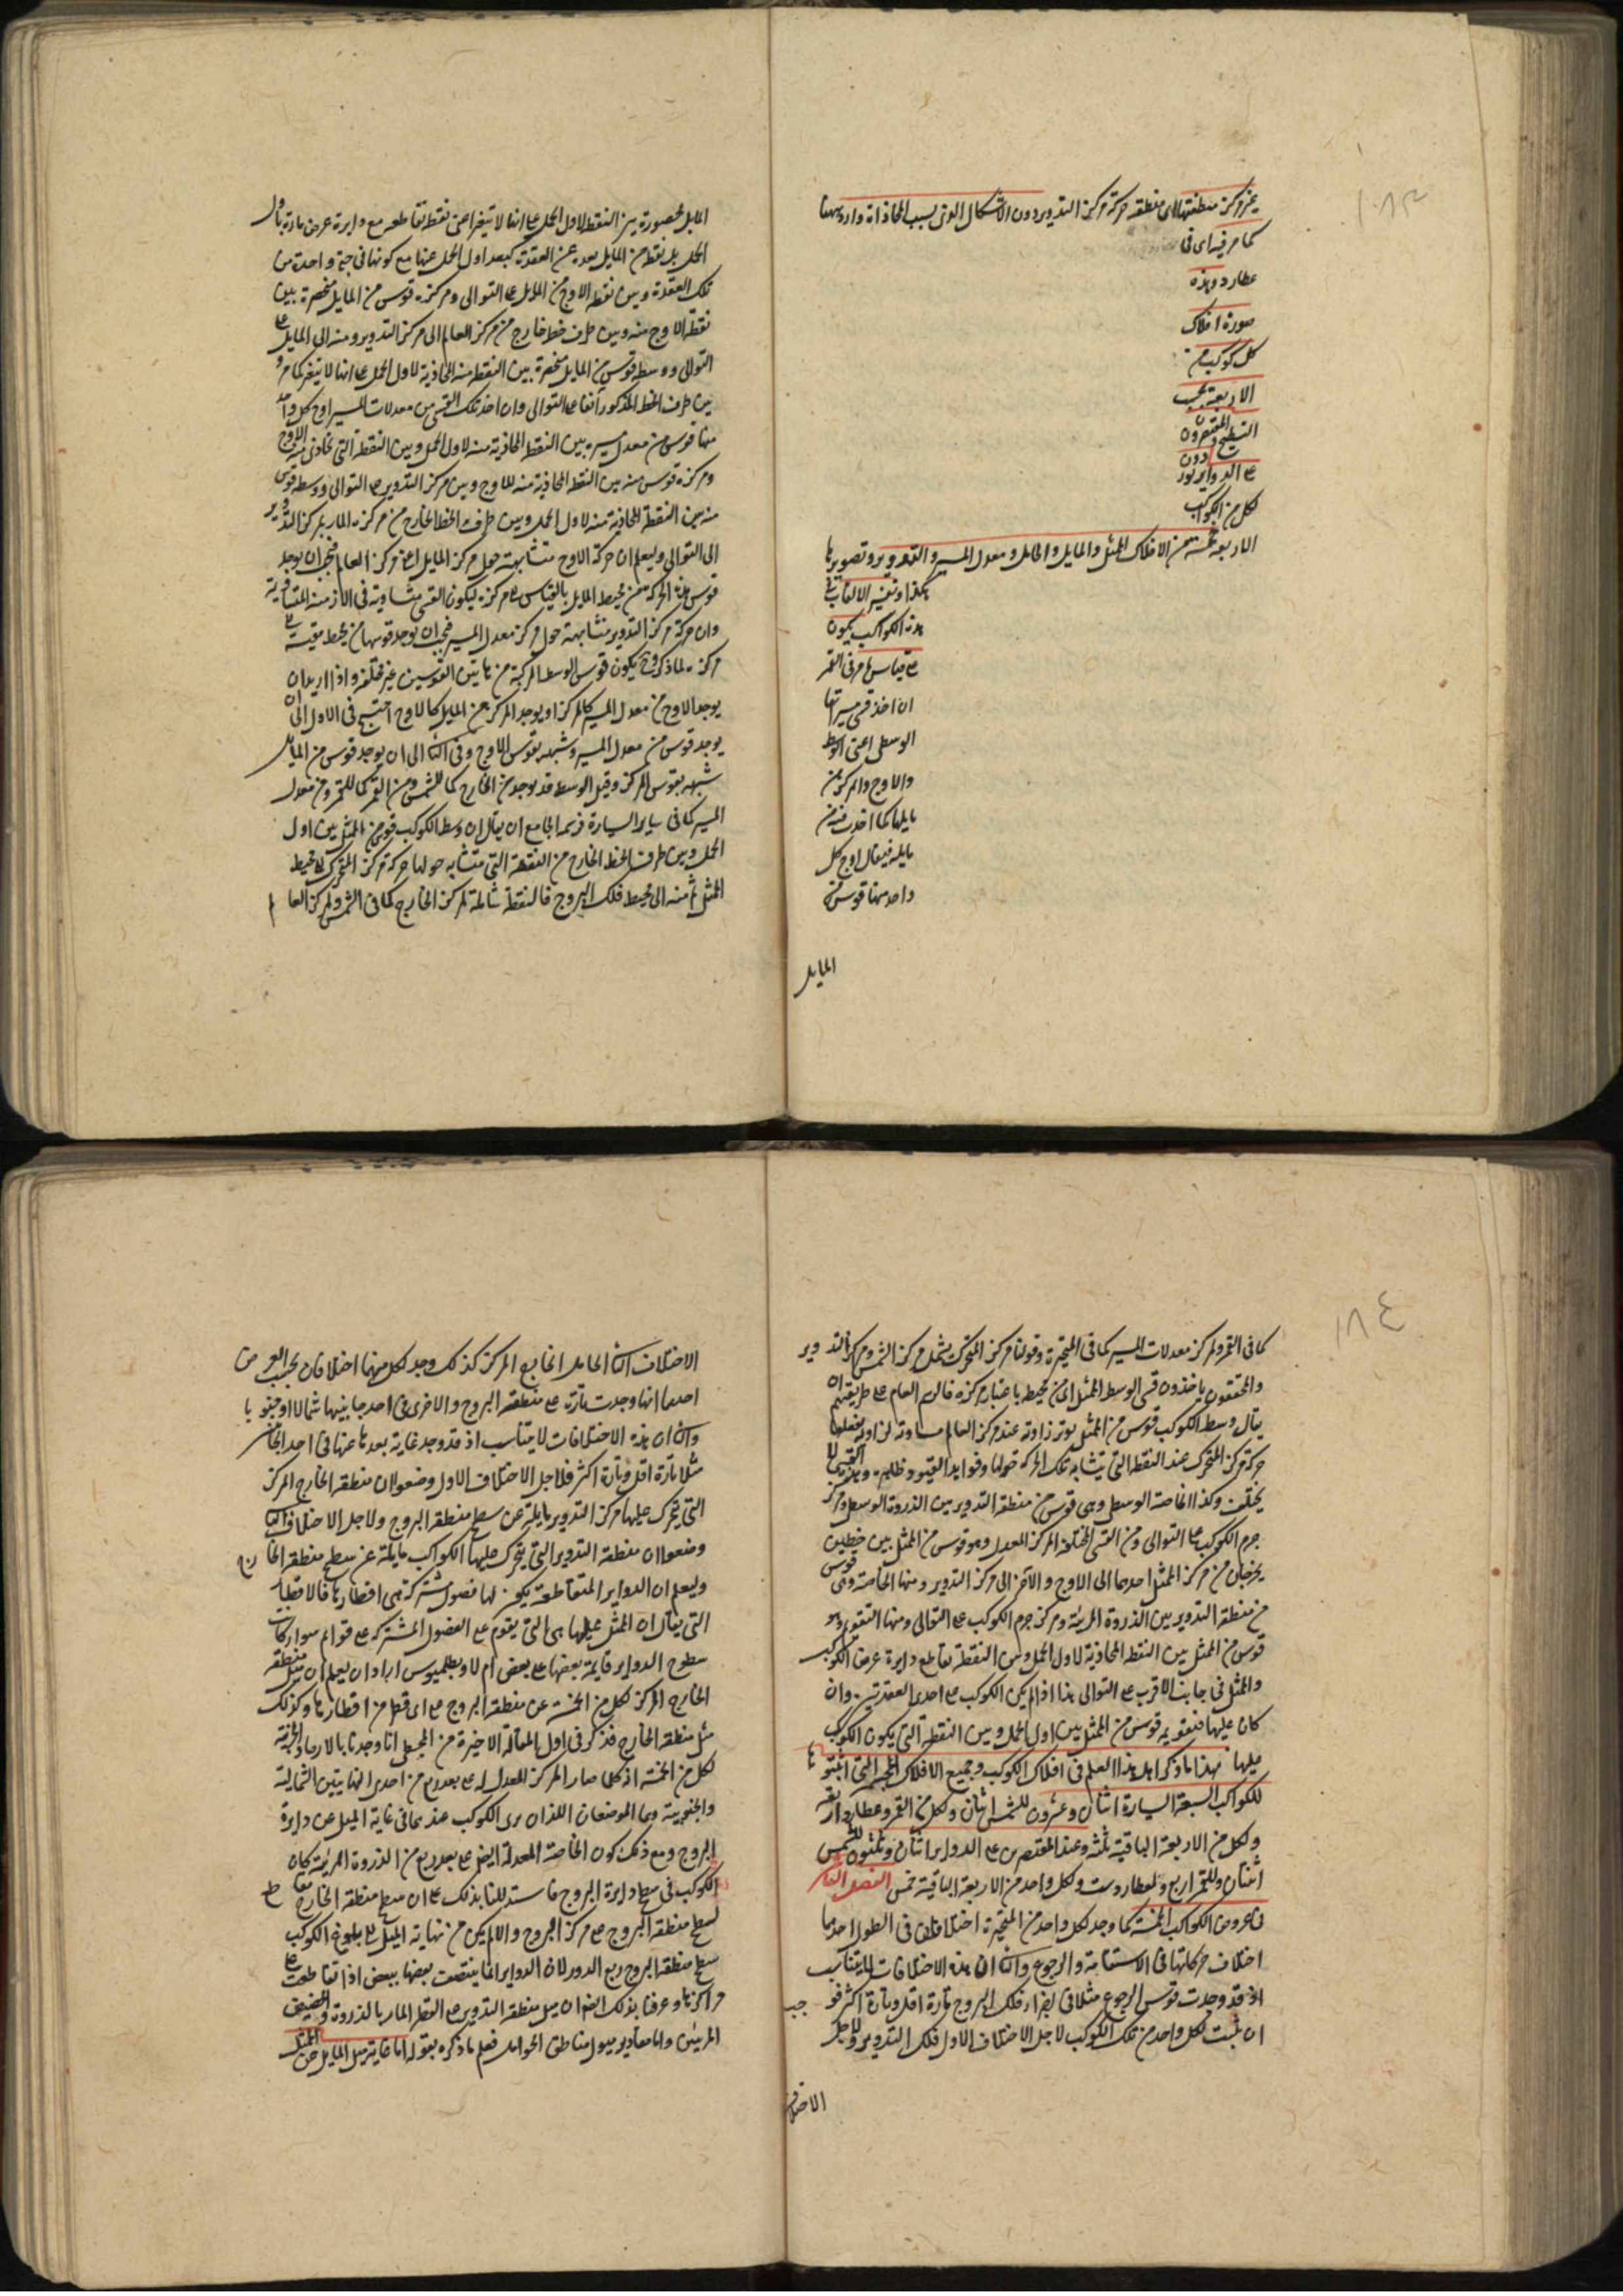 ١٨٣
عن مركز منطقتها الى منطقة حركة مركز التدوير دون الاشكال الذى بسبب المحاذاة وارد ههنا
كما مر فيه اى فى
عطارد وهذه
صورة افلاك
كل كوكب من
الاربعة بحسب
التسطيح
المقتصرون
على الدواير يورد
دون
لكل من الكواكب
الاربعة خمسة من الافلاك الممثل والمايل والحامل ومعدل المسير والتدوير وتصويرها
هكذا وتفسير الالقاب فى
هذه الكواكب يكون
على قياس ما مر فى القمر
ان اخذ قسى مسيراتها
الوسطى اعنى الوسط
والاوج والمركز من
مايلها كما اخذت فيه من
مايله فيقال اوج كل
واحد منها قوس من
المايل
المايل محصورة بين النقطة لاول الحمل على انها لا تتغير اعنى نقطة تقاطعه مع دايرة عرض مارة باول
الحمل بل نقطة من المايل بعده عن العقدة كبعد اول الحمل عنها مع كونها فى جهة واحدة من
تلك العقدة وبين نقطة الاوج من المايل على التوالى ومركزه قوس من المايل منحصرة بين
نقطة الاوج منه وبين طرف خط خارج من مركز العالم الى مركز التدوير ومنه الى المايل على
التوالى ووسطه قوس من المايل منحصرة بين النقطة منه المحاذية لاول الحمل على انها لا تتغير كما مر و
بين طرف الخط المذكور آنفا على التوالى وان اخذ تلك القسى من معدلات المسير اوج كل واحد
منها قوس من معدل مسيره بين النقطة المحاذية منه لاول الحمل وبين النقطة التى تحاذى منه الاوج
ومركزه قوس منه بين النقطة المحاذية منه للاوج وبين مركز التدوير على التوالى ووسطه قوس
منه بين النقطة المحاذية منه لاول الحمل وبين طرف الخط الخارج من مركزه المار بمركز التدوير
الى التوالى وليعلم ان حركة الاوج متشابهة حول مركز المايل اعنى مركز العالم فيجب ان يوجد
قوس هذه الحركة من محيط المايل بالقياس الى مركزه ليكون القسى متساوية فى الازمنة المتساوية
وان حركة مركز التدوير متشابهة حول مركز معدل المسير فيجب ان يوجد قوسها من محيط مقيسة الى
مركزه لما ذكر وح يكون قوس الوسط المركبة من هاتين القوسين غير مختلفة واذا اريد ان
يوجد الاوج من معدل المسير كالمركز او يوجد المركز من المايل كالاوج احتيج فى الاول الى ان
يوجد قوس من معدل المسير وشبهه بقوس الاوج وفى الثانى الى ان يوجد قوس من المايل
شبيهه بقوس المركز وقيل الوسط قد يوجد من الخارج كما للشمس ومن القمر كما للقمر ومن معدل
المسير كما فى ساير السيارة فرسمه الجامع ان يقال ان وسط الكوكب قوس من الممثل بين اول
الحمل وبين طرف الخط الخارج من النقطة التى متشابه حولها حركة مركز المتحرك الى محيط
الممثل ثم منه الى محيط فلك البروج فالنقطة شاملة لمركز الخارج كما فى الشمس ولمركز العالم
١٨٤
كما فى القمر ولمركز معدلات المسير كما فى المتحيرة وقولنا مركز المتحرك يشمل مركز الشمس ومركز التدوير
والمحققون ياخذون قسى الوسط الممثل اى من محيط باعتبار مركزه فالرسم العام على طريقتهم ان
يقال وسط الكوكب قوس من الممثل يوتر زاوية عند مركز العالم مساوية لزاوية يفعلها
حركة مركز المتحرك عند النقطة التى يتشابه تلك الحركة حولها وفوايد القيود ظاهرة وهذه القسى لا
يختلف وكذا الخاصة الوسطى وهى قوس من منطقة التدوير بين الذروة الوسطى ومركز
جرم الكوكب على التوالى ومن القسى المختلفة المركز المعدل وهو قوس من الممثل بين خطين
يخرجان من مركز الممثل احدهما الى الاوج والآخر الى مركز التدوير ومنها الخاصة وهى قوس
من منطقة التدوير بين الذروة المرئية ومركز جرم الكوكب على التوالى ومنها التقويم وهو
قوس من الممثل بين النقطة المحاذية لاول الحمل وبين النقطة تقاطع دايرة عرض الكوكب
والممثل فى جانب الاقرب على التوالى هذا اذا لم يكن الكوكب على احدى العقدتين وان
كان عليها فتقويمه قوس من الممثل بين اول الحمل وبين النقطة التى يكون الكوكب
عليها فهذا ما ذكر اهل هذا العلم فى افلاك الكوكب وجميع الافلاك المجسمة التى اثبتوها
للكواكب السبعة السيارة اثنان وعشرون للشمس اثنان ولكل من القمر وعطارد اربعة
ولكل من الاربعة الباقية ثلثة وعند المقتصرين على الدواير اثنان وثلثون للشمس
اثنان وللقمر اربع ولعطارد ست ولكل واحد من الاربعة الباقية خمس الفصل العاشر
فى عروض الكواكب الخمسة كما وجد لكل واحد من المتحيرة اختلافان فى الطول احدهما
اختلاف حركاتها فى الاستقامة والرجوع والثانى ان هذه الاختلافات لا يتناسب
اذ قد وجدت قوس الرجوع مثلا فى اجزاء فلك البروج تارة اقل وتارة اكثر فوجب
ان يثبت لكل واحد من تلك الكواكب لاجل الاختلاف الاول فلك التدوير ولاجل
الاختلاف
الاختلاف الثانى الحامل الخارج المركز كذلك وجد لكل منهما اختلافان بحسب العرض
احدهما انها وجدت تارة على منطقة البروج والاخرى فى احد جانبيها شمالا او جنوبا
والثانى ان هذه الاختلافات لا يتناسب اذ قد وجد غاية بعدها عنها فى احد الجانبين
مثلا تارة اقل وتارة اكثر فلاجل الاختلاف الاول وضعوا ان منطقة الخارج المركز
التى يتحرك عليها مركز التدوير مايلة عن سطح منطقة البروج ولاجل الاختلاف الثانى
وضعوا ان منطقة التدوير التى يتحرك عليها الكواكب مايلة عن سطح منطقة الخارج
وليعلم ان الدواير المتقاطعة يكون لها فصول مشتركة هى اقطارها فالاقطار
التى يقال ان الممثل عليها هى التى يقوم على الفصول المشتركة على قوايم سوا كانت
سطوح الدواير قايمة بعضها على بعض ام لا وبطلميوس اراد ان يعلم ان ميل منطقة
الخارج المركز لكل من الخمسة عن منطقة البروج على اى قطر من اقطارها وكذلك
ميل منطقة الخارج فذكر فى اول المقالة الاخيرة من المجسطى انا وجدنا بالارصاد الجزئية
لكل من الخمسة اذ كلما صار المركز المعدل له على بعد ربع من احدى النهايتين الشمالية
والجنوبية وهما الموضعان اللذان يرى الكوكب عندهما فى غاية الميل عن دايرة
البروج ومع ذلك كون الخاصة المعدلة ايضا على بعد ربع من الذروة المرئية كان
الكوكب فى سطح دايرة البروج فاستدللنا بذلك على ان سطح منطقة الخارج مقاطع
لسطح منطقة البروج على مركز البروج والا لم يكن من نهاية الميل الى بلوغ الكوكب
سطح منطقة البروج ربع الدور لان الدواير انما ينتصف بعضها ببعض اذا تقاطعت على
مراكزها وعرفنا بذلك ايضا ان ميل منطقة التدوير على القطر المار بالذروة والحضيض
المرئيين واما مقادير ميول مناطق الحوامل فعلم ما ذكره بقوله اما غاية ميل المايل عن الممثل